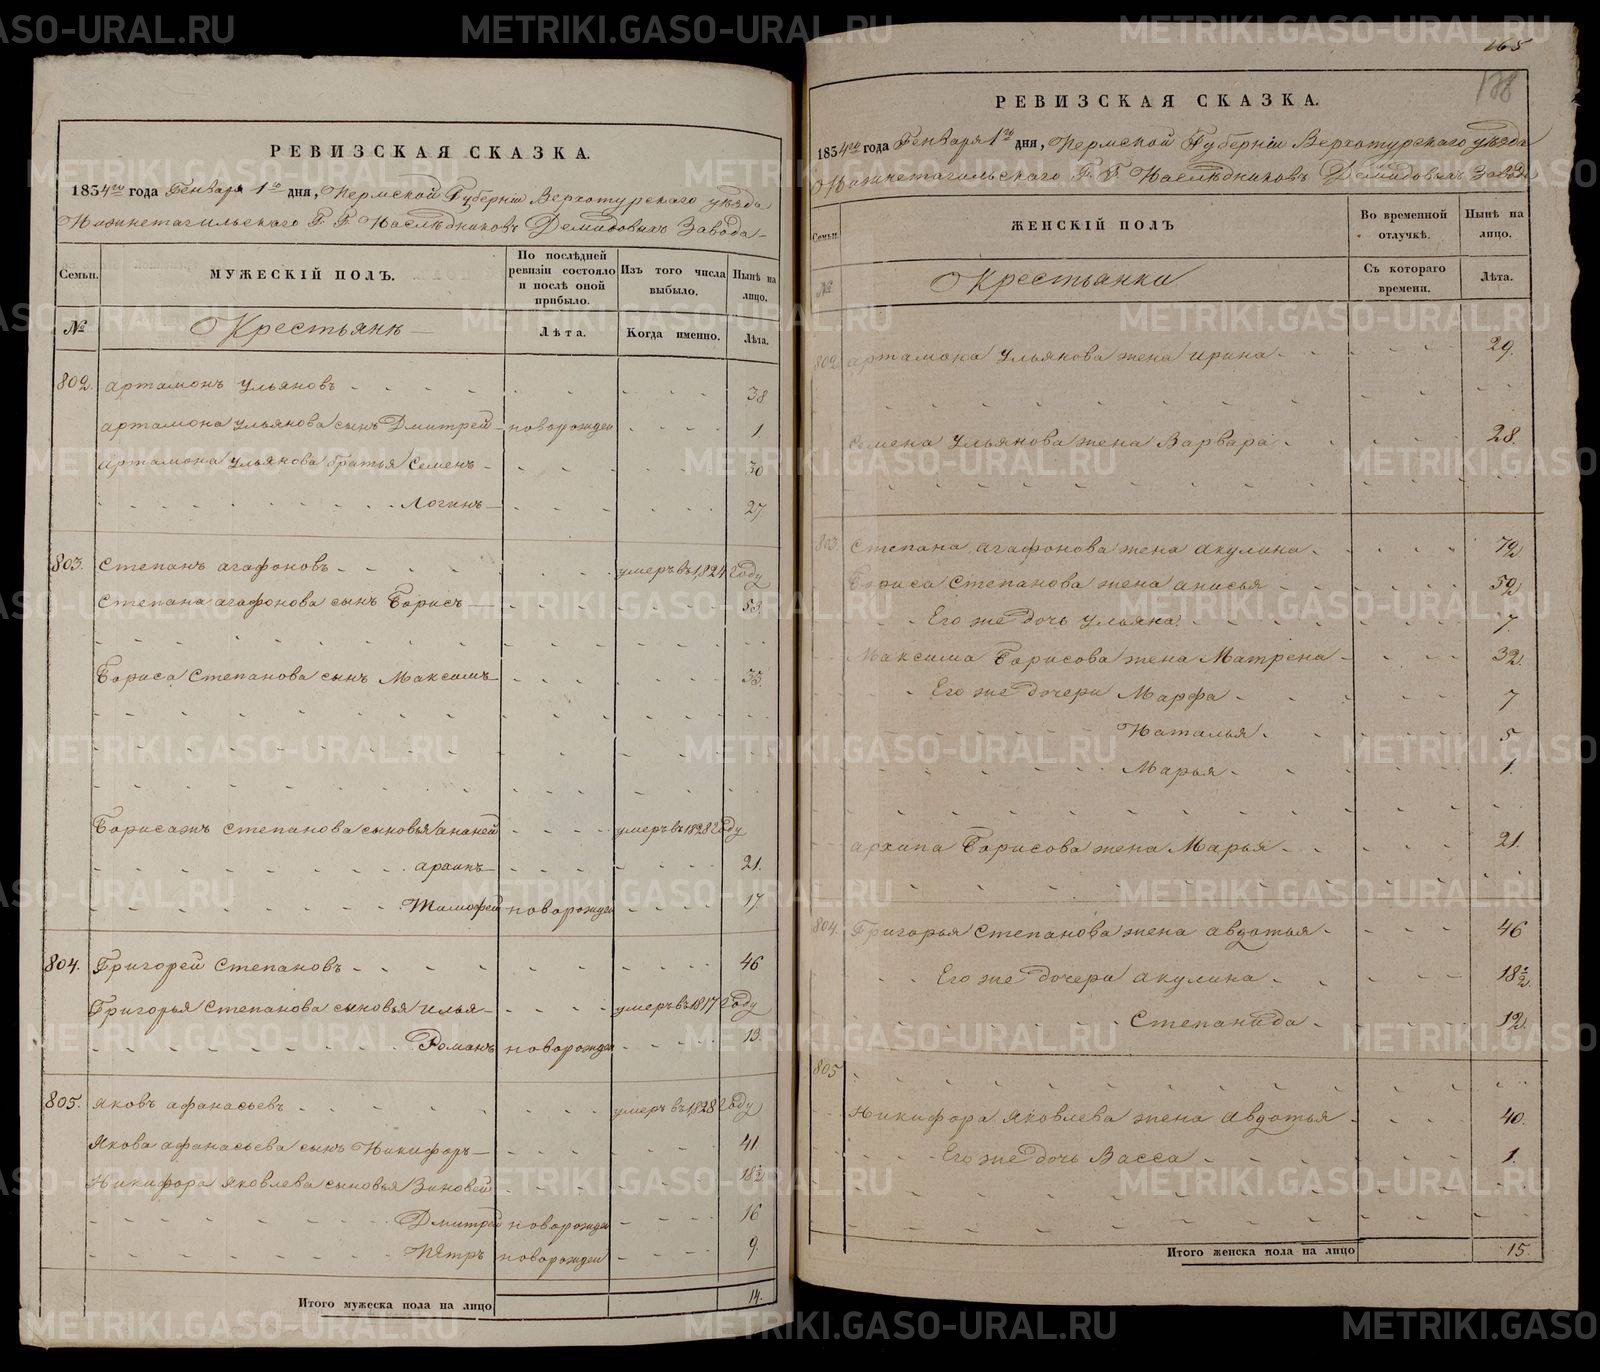 РЕВИЗСКАЯ СКАЗКА.
1834го года Генваря 1го дня, Пермской Губернiи Верхотурскаго уѣзда
Нижнетагильскаго Г. Г. Наслѣдниковъ Демидовыхъ Завода
Семьи. МУЖЕСКIЙ ПОЛЪ. По послѣдней ревизiи состояло и послѣ оной прибыло. Изъ того числа выбыло. Нынѣ на лицо.
№ Крестьянѣ Лѣта. Когда именно. Лѣта.
802. артамонъ ульяновъ 38
артамона ульянова сынъ Дмитрей новорожден 1
артамона ульянова братья Семенъ 30
Логинъ 27
803. Степанъ агафоновъ умеръ въ 1824 году
Степана агафонова сынъ Борисъ 53
Бориса Степанова сынъ Максимъ 33.
Бориса жъ Степанова сыновья ананей умеръ въ 1828 году
архипъ 21.
Тимофей новорожден 17.
804. Григорей Степановъ 46
Григорья Степанова сыновья илья умеръ въ 1817 году
Романъ новорожден 13.
805. яковъ афанасьевъ умеръ въ 1828 году
Якова афанасьева сынъ Никифоръ 41
Никифора яковлева сыновья Зиновей 18½
Дмитрей новорожден 16
Пётръ новорожден 9.
Итого мужеска пола на лицо 14.
165
178
РЕВИЗСКАЯ СКАЗКА.
1834го года Генваря 1го дня, Пермской Губернiи Верхотурскаго уѣзда
Нижнетагильскаго Г. Г. Наслѣдниковъ Демидовыхъ Завода
Семьи. ЖЕНСКIЙ ПОЛЪ Во временной отлучкѣ. Нынѣ на лицо.
№ Крестьянки Съ котораго времени. Лѣта.
802. артамона ульянова жена ирина 29.
семена ульянова жена Варвара 28.
803. Степана агафонова жена акулина 72
Бориса Степанова жена анисья 52
Его же дочь ульяна. 7.
Максима Борисова жена Матрена 32.
Его же дочери Марфа 7
Наталья 5
Марья 1.
архипа Борисова жена Марья 21.
804. Григорья Степанова жена авдотья 46
Его же дочери акулина 18½
Степанида 12.
805
Никифора яковлева жена авдотья 40.
Его же дочь Васса 1.
Итого женска пола на лицо 15.